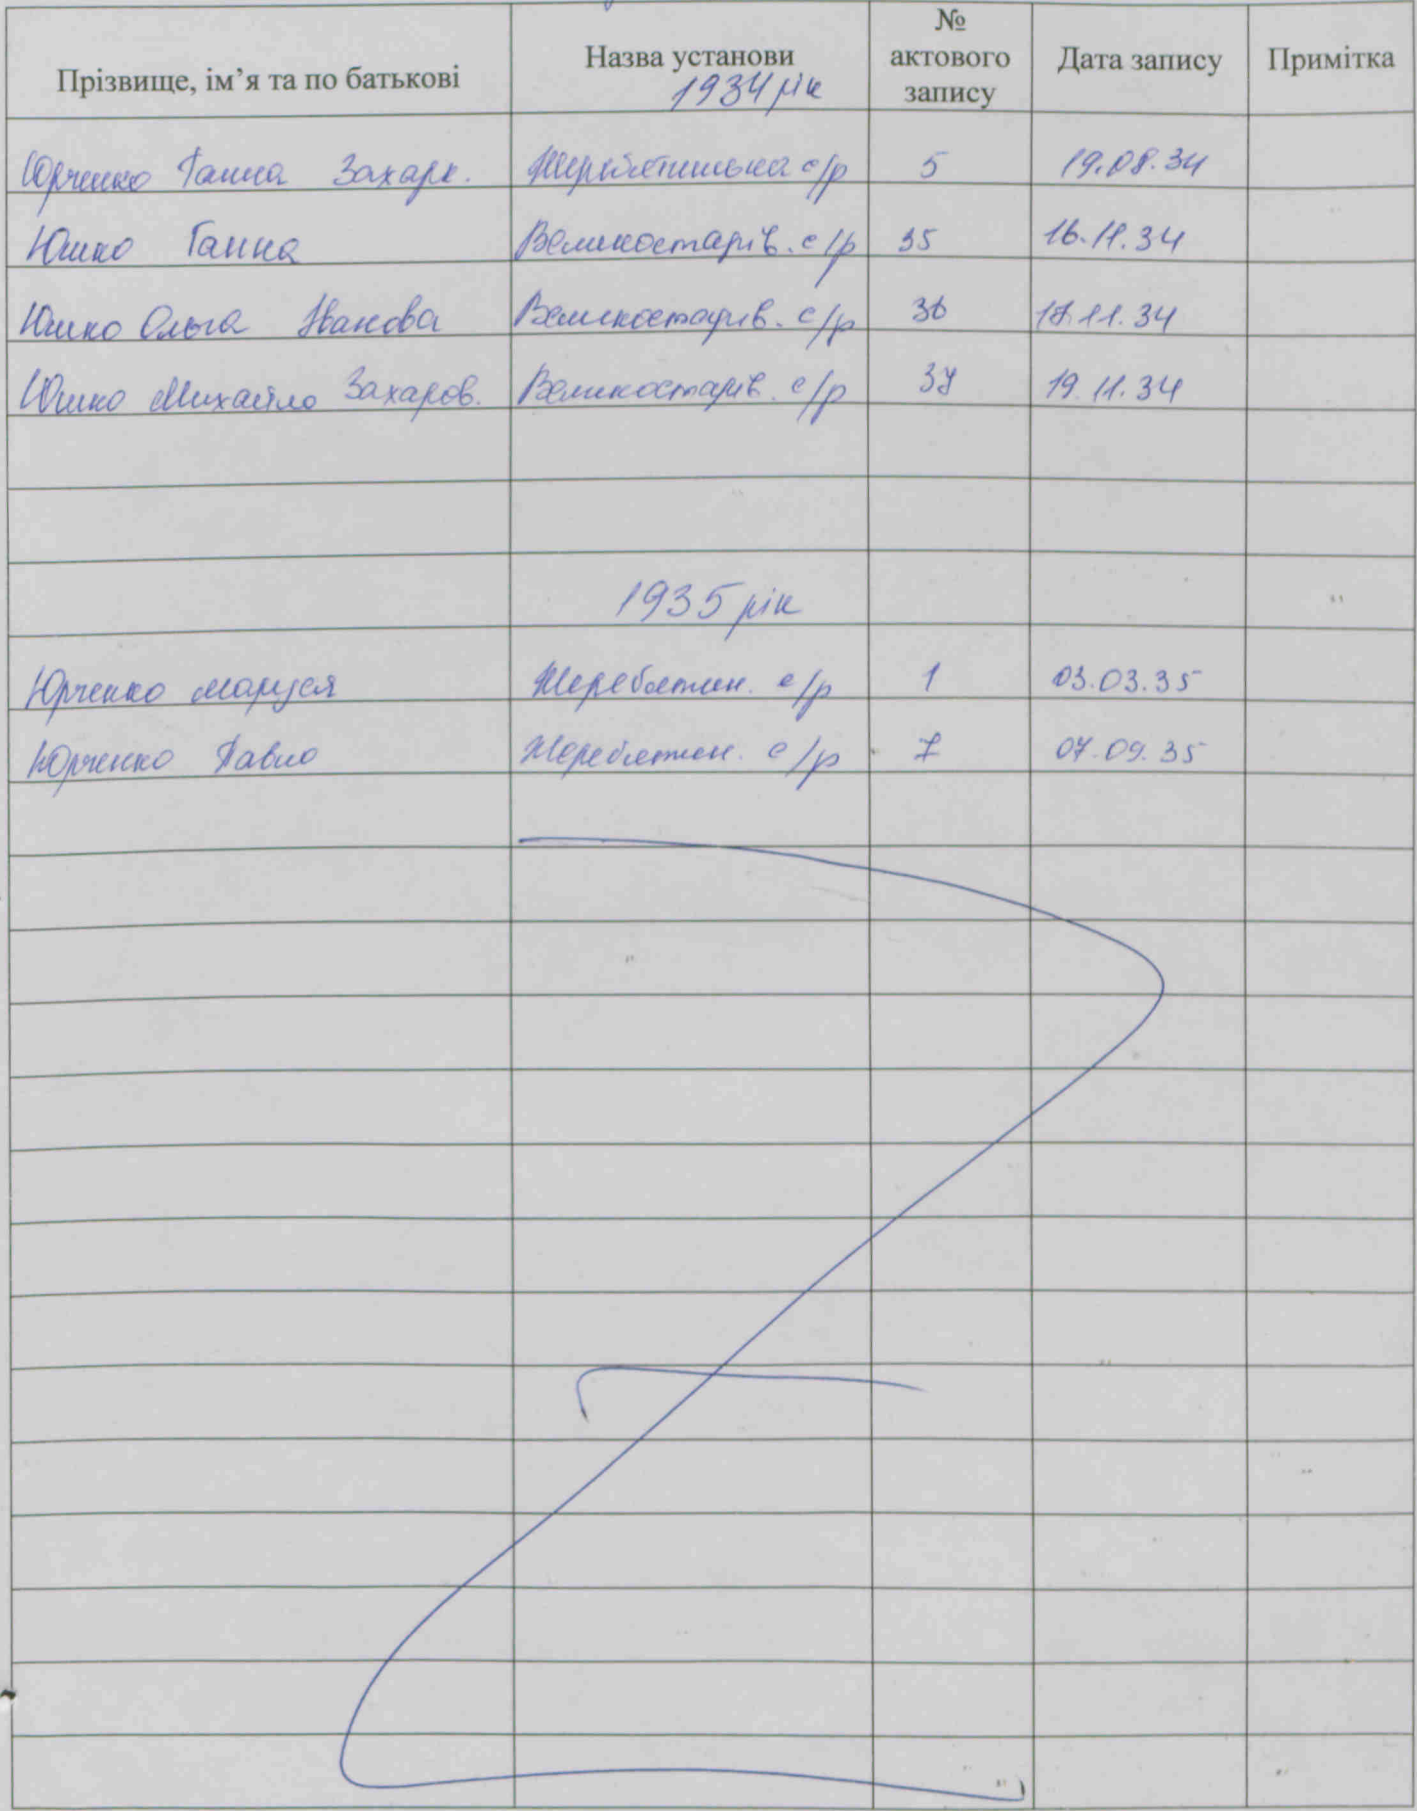 Прізвище, ім’я та по батькові Назва установи № актового запису Дата запису Примітка
1934 рік
Юрченко Ганна Захарк. с/р 5 19.08.34
Юшко Ганна Великостарів. с/р 35 16.11.34
Юшко Ольга Іванова Великостарів. с/р 36 11.34
Юшко Михайло Захаров. Великостарів. с/р 37 19.11.34
1935 рік
Юрченко Маруся Жеребятин. с/р 1 03.03.35
Юрченко Павло Жеребятин. с/р 7 07.09.35